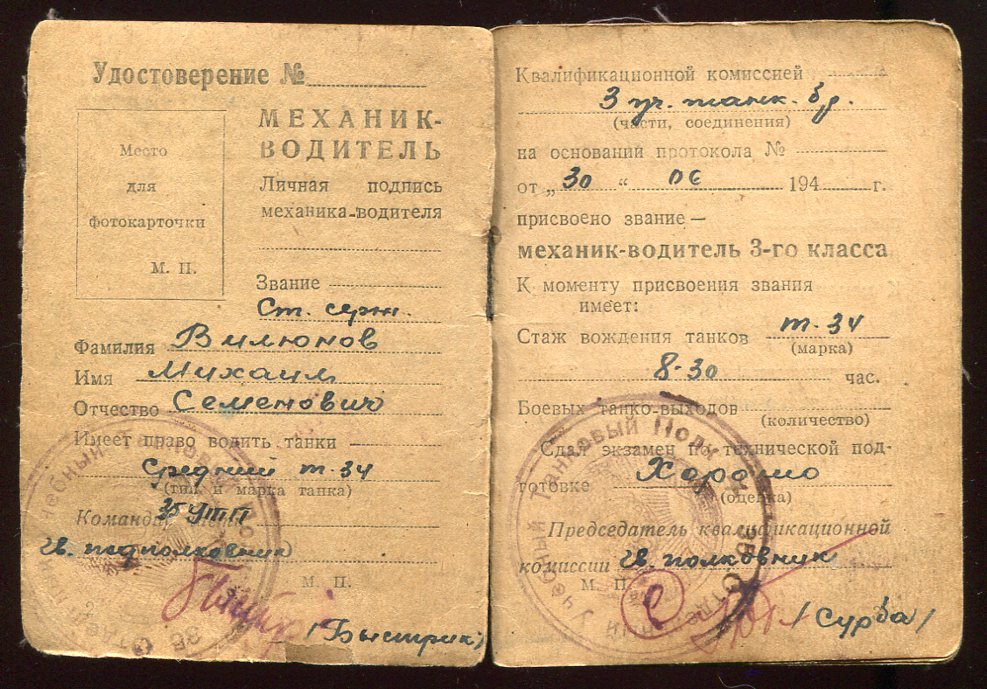 Удостоверение №
МЕХАНИК-
ВОДИТЕЛЬ
Место
для
фотокарточки
М. П.
Личная подпись
механика-водителя
Звание
Ст. серж.
Фамилия Вилюнов
Имя Михаил
Отчество Семенович
Имеет право водить танки
Средний т-34
(тип и марка танка)
Командир 35 УТП
гв. подполковник
М. П.
(Быстрик)
Квалификационной комиссией
3 уч. танк. бр.
(части, соединения)
на оснований протокола №
от „30“ 06 194 г.
присвоено звание —
механик-водитель 3-го класса
К моменту присвоения звания
имеет:
Стаж вождения танков т-34
(марка)
8-30 час.
Боевых танко-выходов
(количество)
Сдал экзамен по технической под-
готовке Хорошо
(оценка)
Председатель квалификационной
комиссии гв. полковник
М. П.
/Сурба/
Учебный Танковый Полк
35 Отдельный